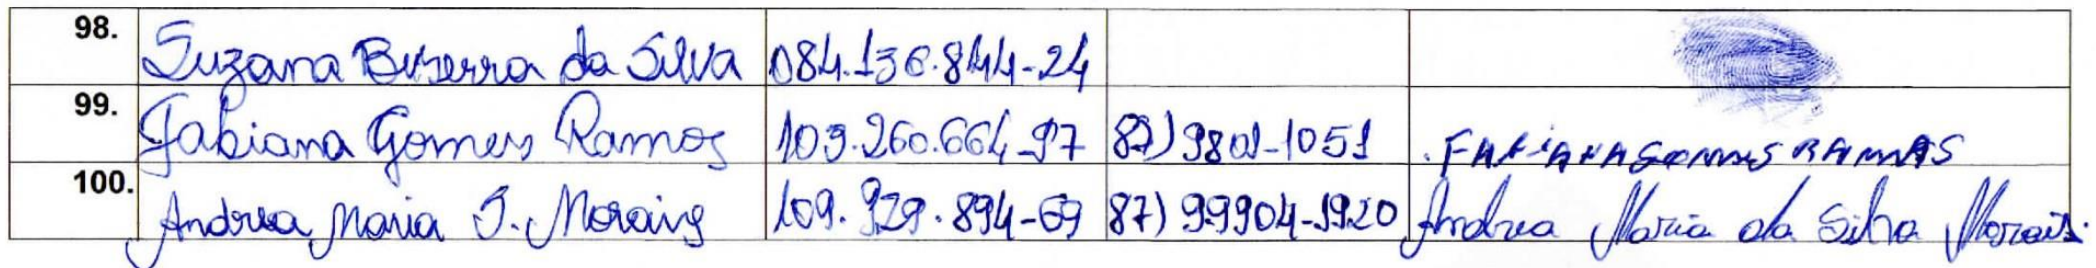 98. Suzana Bezerra da Silva 084.136.844-24
99. Fabiana Gomes Ramos 109.260.664-97 87) 9801-1051 FABIANA GOMES RAMOS
100. Andrea Maria S. Morais 109.929.894-69 87) 99904-1920 Andrea Maria da Silva Morais.